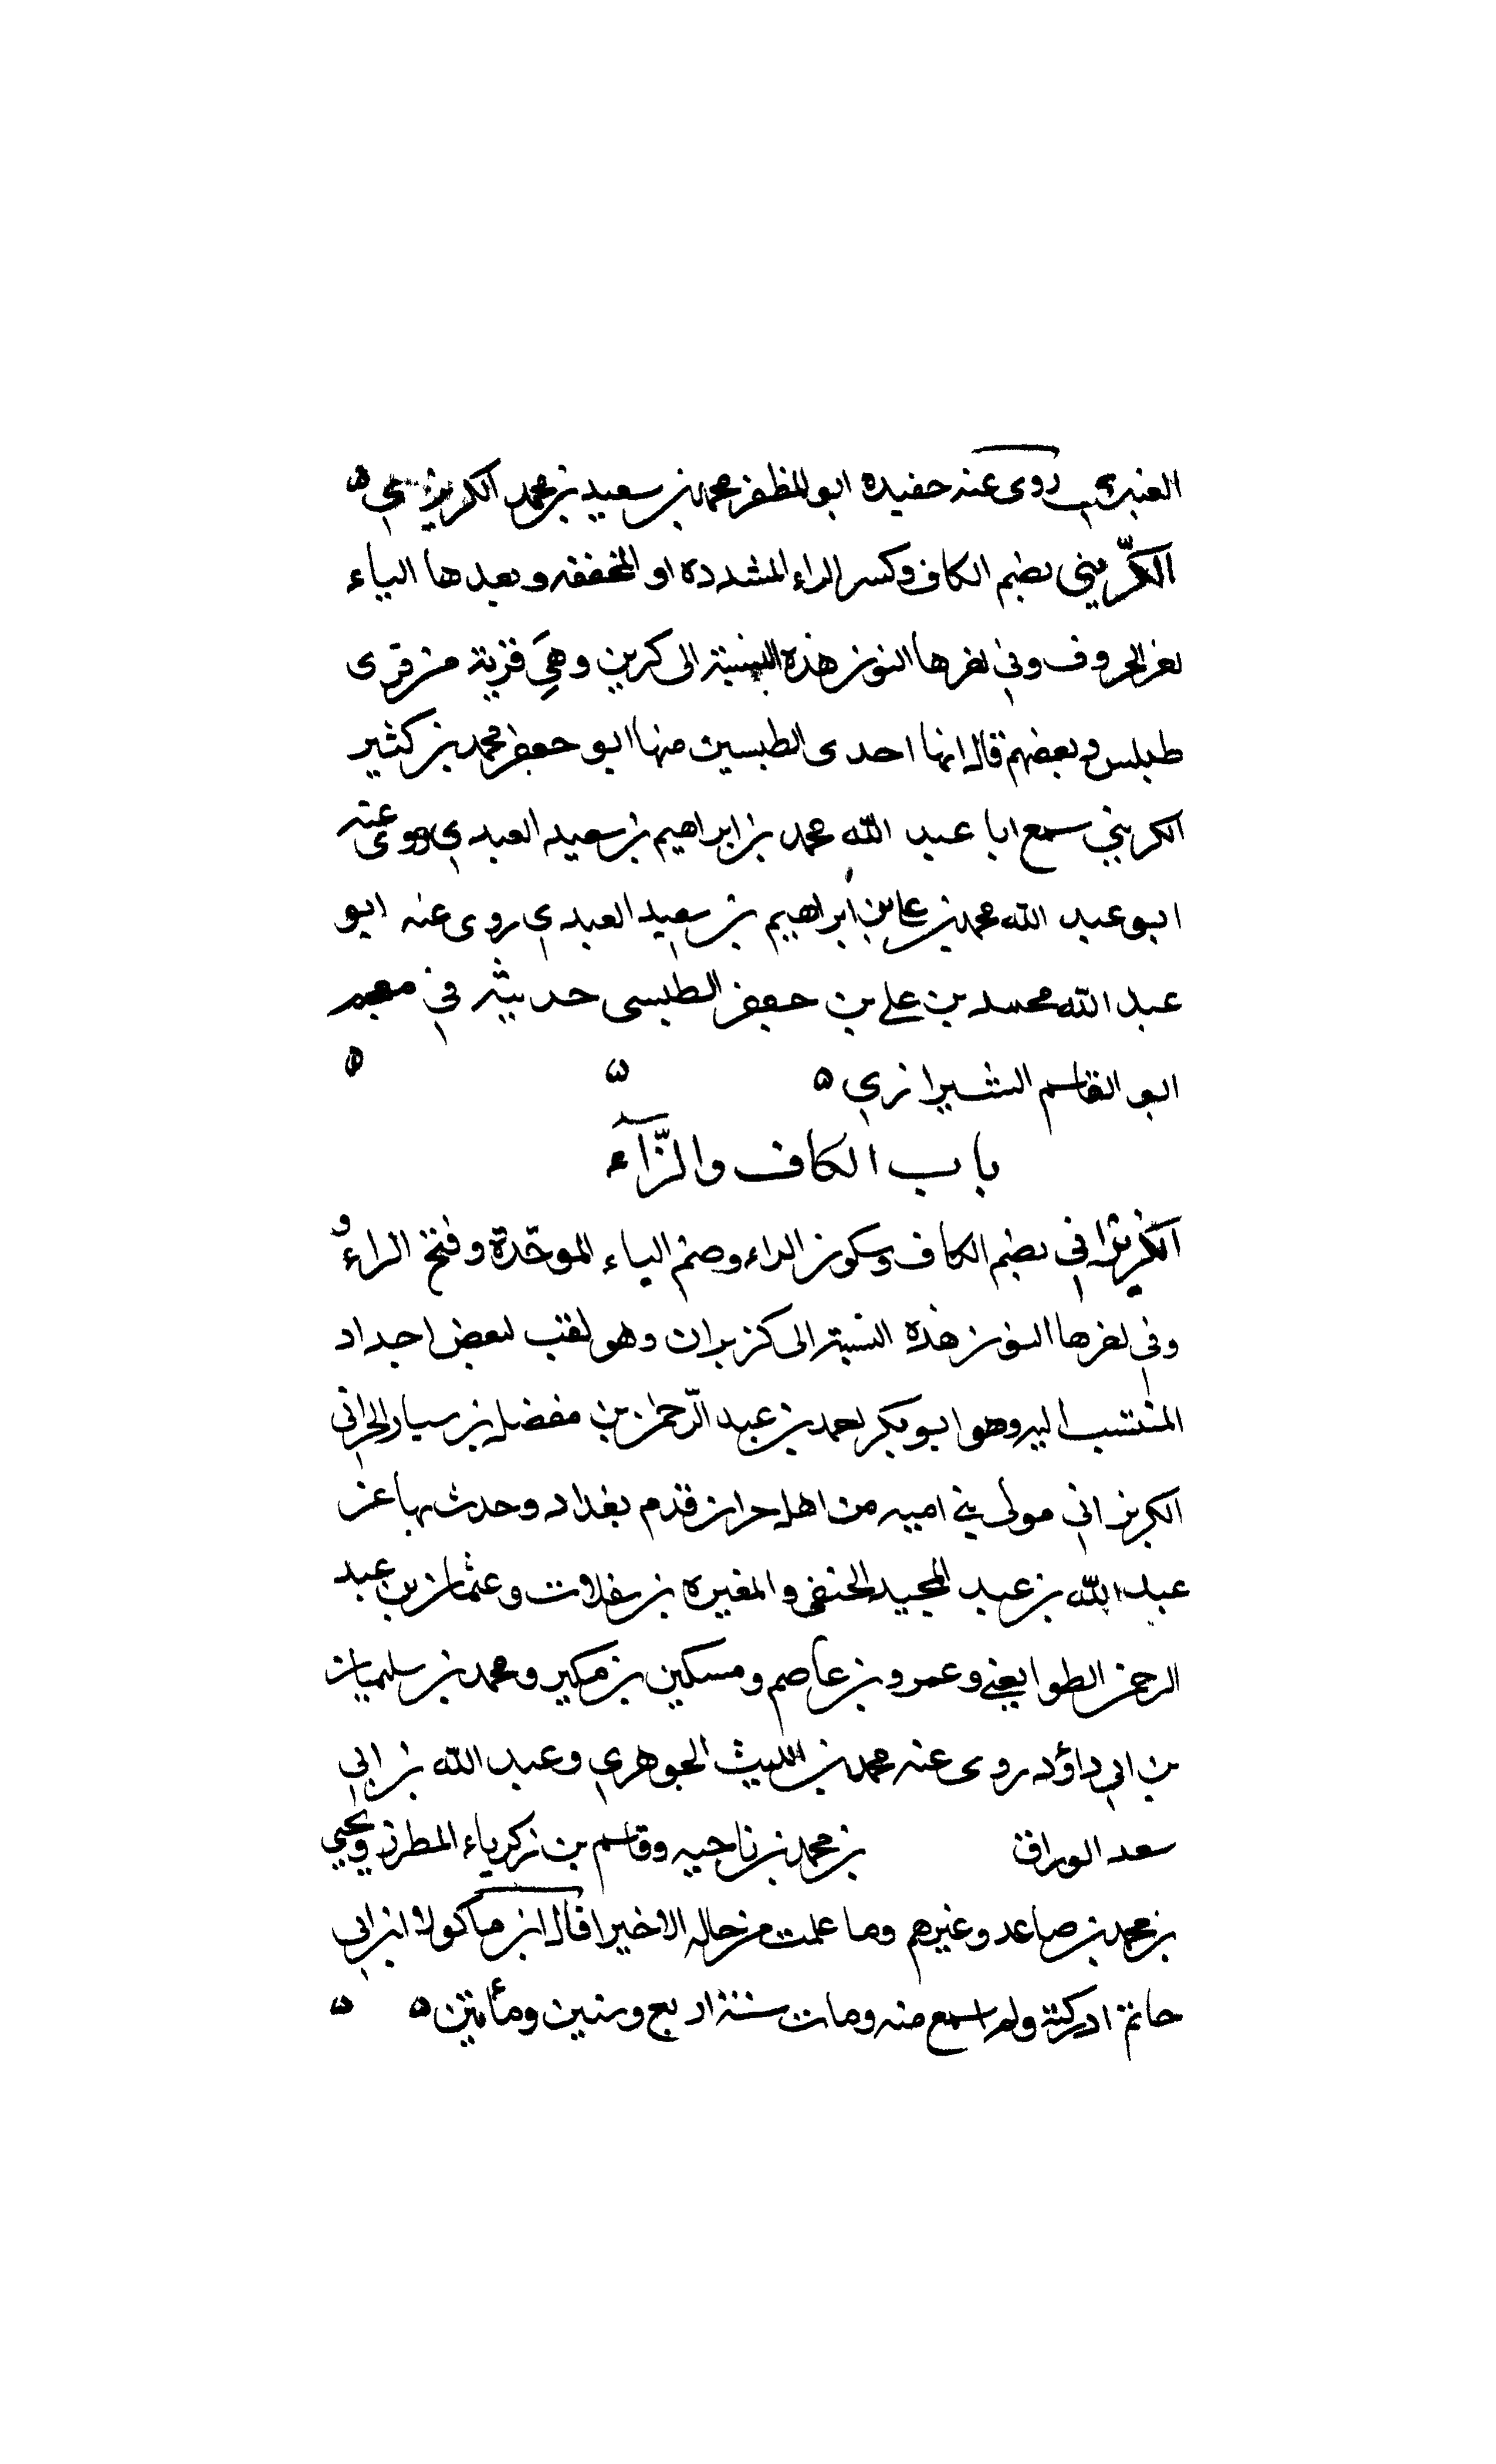 العنبري روى عنه حفيده ابو المظفر محمد بن سعيد بن محمد الكريزي ه
الكُرّيني بضم الكاف وكسر الراء المشدده او المخففه وبعدها الياء
اخر الحروف وفي اخرها النون هذه النسبة الى كرين وهي قرية من قرى
طبس وبعضهم قال انها احدى الطبسين منها ابو جعفر محمد بن كثير
الكريني سمع ابا عبد الله محمد بن ابراهيم بن سعيد العبدي روى عنه
ابو عبد الله محمد بن علي بن ابراهيم بن سعيد العبدي روى عنه ابو
عبد الله محمد بن علي بن جعفر الطبسي حديثه في معجم
ابو القاسم الشيرازي ه ه ه
باب الكاف والزّآء
الكزبراني بضم الكاف وسكون الزاء وضم الباء الموحّدة وفتح الراءُ
وفي اخرها النون هذه النسبة الى كزبران وهو لقب لبعض اجداد
المنتسب اليه وهو ابو بكر احمد بن عبد الرّحمن بن مفضل بن سيار الحراني
الكزبراني مولى بني اميه من اهل حران قدم بغداد وحدث بها عن
عبد الله بن عبد المجيد الحنفي والمغيره بن سقلاب وعثمان بن عبد
الرحمن الطوايفي وعمرو بن عاصم ومسكين بن مكير ومحمد بن سليمان
بن ابي داؤد روى عنه محمد بن الليث الجوهري وعبد الله بن ابي
سعد الوراق بن محمد بن ناجيه وقاسم بن زكرياء المطرز ويحيي
بن محمد بن صاعد وغيرهم وما علمت من حاله الا خيرا قال ابن ماكولا ابن ابي
حاتم ادركته ولم اسمع منه ومات سنة اربع وستين ومأتين ه ه